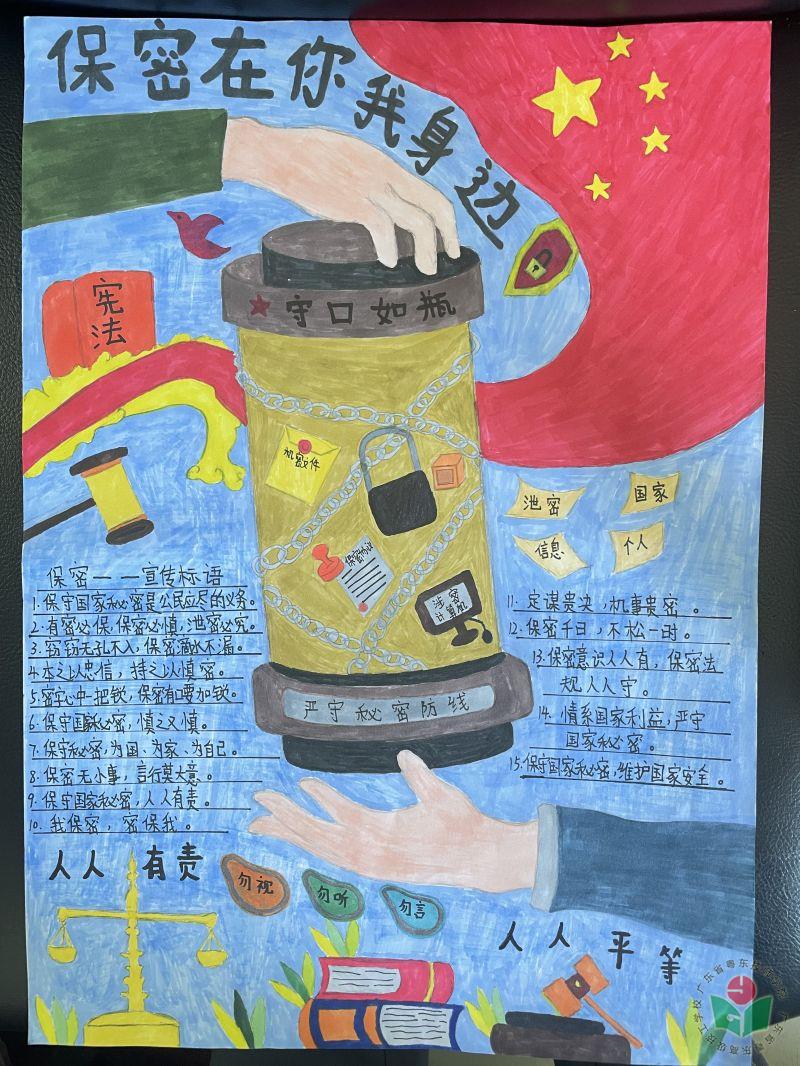 保密在你我身边
宪法
★守口如瓶
机密文件
保密协议
涉密
计算机
严守秘密防线
泄密
国家
信息
个人
保密——宣传标语
1.保守国家秘密是公民应尽的义务。
2.有密必保,保密必慎,泄密必究。
3.窃窃无孔不入,保密滴水不漏。
4.本之以忠信,持之以慎密。
5.密字心中一把锁,保密有口要加锁。
6.保守国家秘密,慎之又慎。
7.保守秘密,为国、为家、为自己。
8.保密无小事,言行莫大意。
9.保守国家秘密,人人有责。
10.我保密,密保我。
11.定谋贵决,机事贵密。
12.保密千日,不松一时。
13.保密意识人人有,保密法
规人人守。
14.情系国家利益,严守
国家秘密。
15.保守国家秘密,维护国家安全。
人人有责
勿视
勿听
勿言
人人平等